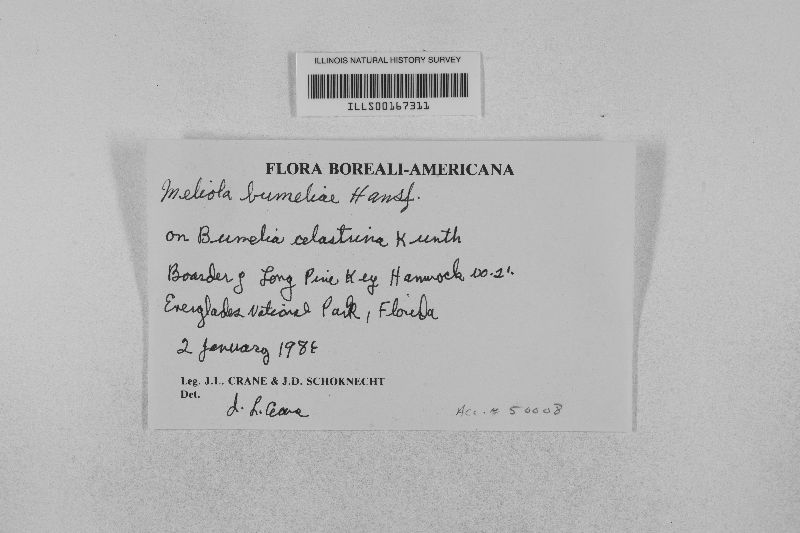 ILLINOIS NATURAL HISTORY SURVEY
ILLS00167311
FLORA BOREALI-AMERICANA
Meliola bumeliae Hansf.
on Bumelia celastrina Kunth
Boarder of Long Pine Key Hammock
Everglades National Park, Florida
2 January 198
Leg. J.L. CRANE & J.D. SCHOKNECHT
Det.
J. L. Crane
Acc. # 50008